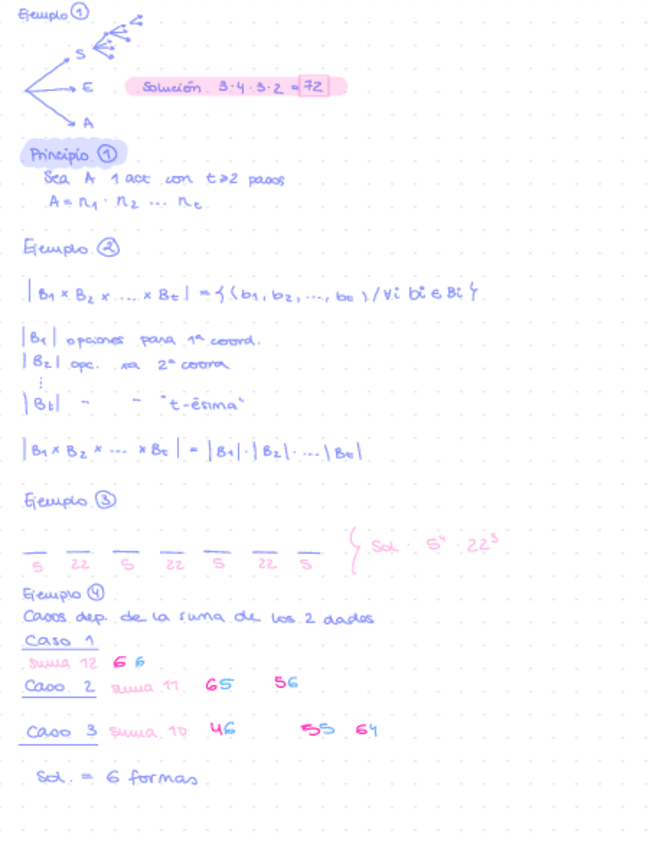 Ejemplo ①
S
E
Solución. 3·4·3·2 = 72
A
Principio ①
Sea A 1 act con t≥2 pasos
A = n₁ · n₂ ... nₜ
Ejemplo ②
|B₁ × B₂ × .... × Bₜ| = {(b₁, b₂, ..., bₜ) / ∀i bi ∈ Bi}
|B₁| opciones para 1ª coord.
|B₂| opc. xa 2ª coord
⋮
|Bₜ| " " "t-ésima"
|B₁ × B₂ × .... × Bₜ| = |B₁|·|B₂|· ....|Bₜ|
Ejemplo ③
Sol · 5⁴ · 22³
5 22 5 22 5 22 5
Ejemplo ④
Casos dep. de la suma de los 2 dados
Caso 1
suma 12 6 6
Caso 2 suma 11 65 56
Caso 3 suma 10 46 55 64
Sol. = 6 formas